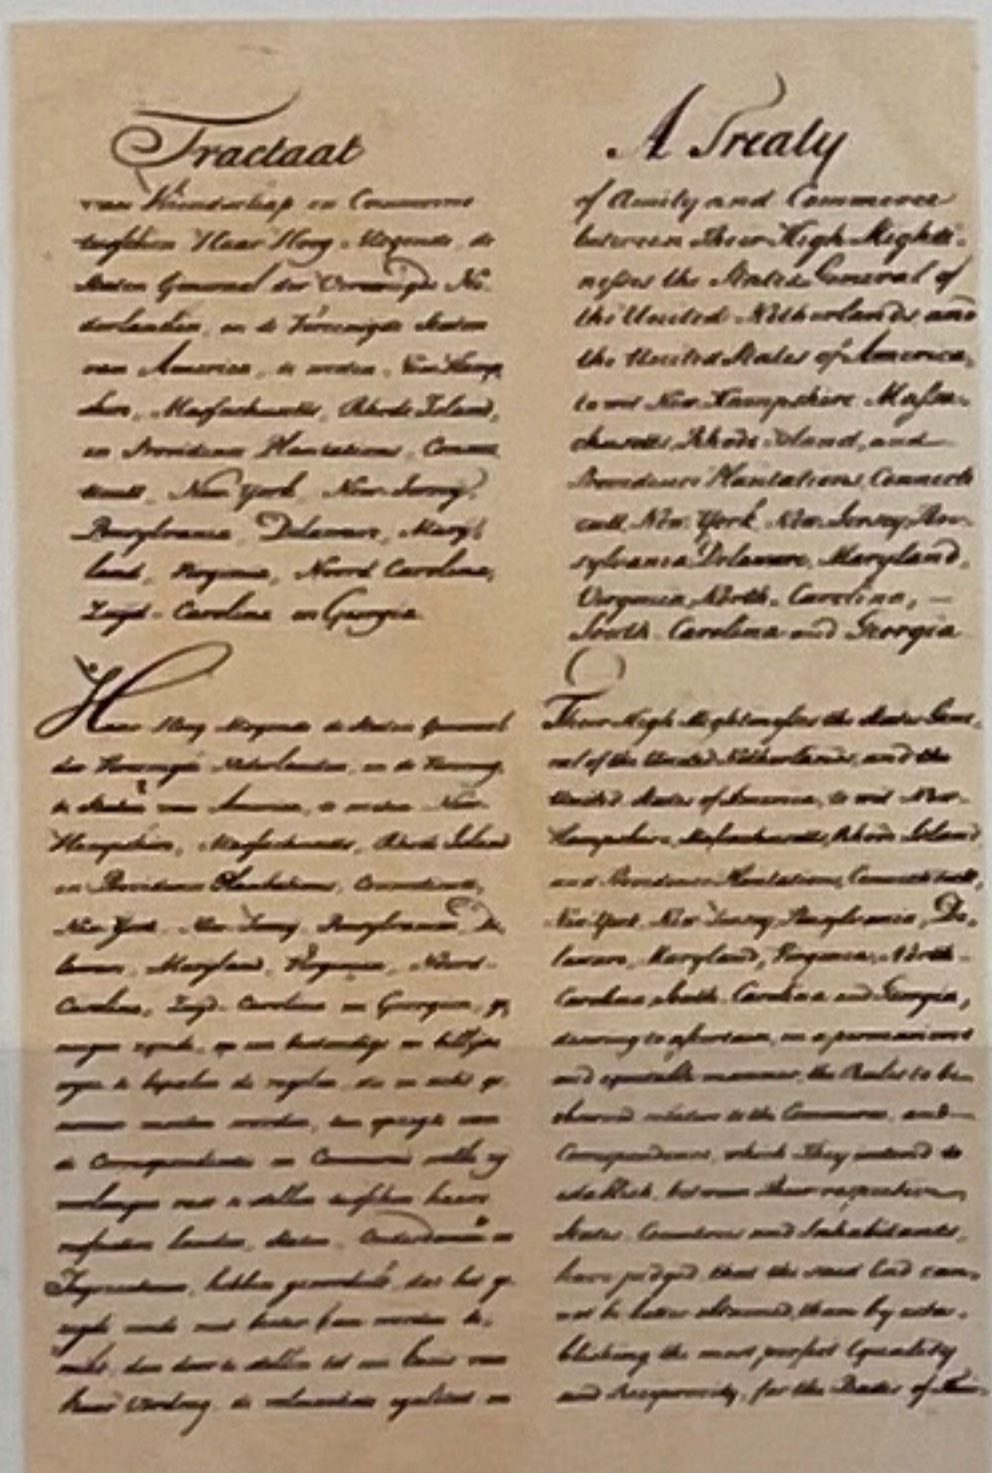 Tractaat
van Vriendschap en Commercie
tusschen Haar Hoog Mogende, de
Staten Generaal der Vereenigde Ne-
derlanden, en de Vereenigde Staten
van America, te weten, New Hamp
shire, Massachusetts, Rhode Island,
en Providence Plantations, Connec
ticutt, New York, New Jersey,
Pensylvania, Delaware, Mary
land, Virginia, Noord Carolina,
Zuyd-Carolina en Georgia
Haar Hoog Mogende de Staten Generaal
der Vereenigde Nederlanden, en de Vereenig
de Staten van America, te weten New
Hampshire, Massachusetts, Rhode Island
en Providence Plantations, Connecticutt,
New York, New Jersey, Pensylvania, De
laware, Maryland, Virginia, Noord-
Carolina, Zuyd-Carolina en Georgia, ge
negen zynde, op een bestendige en billyke
wyze te bepalen de regelen, die in acht ge
nomen moeten worden, ten opzigte van
de Correspondentie en Commercie welke zy
verlangen vast te stellen tusschen haare
landen, Staten, Onderdanen en
Ingezetenen, hebben geoordeelt, dat het ge
zegde einde niet beter kan worden be
reikt, dan door te stellen tot een basis van
haar Verdrag, de volmaakste egaliteit en
A Treaty
of Amity and Commerce
between Their High Mighti-
nesses the States General of
the United Netherlands, and
the United States of America,
to wit New Hampshire Massa-
chusetts, Rhode Island, and
Providence Plantations, Connecti
cutt, New York, New Jersey, Pen-
sylvania Delaware, Maryland,
Virginia, North-Carolina, —
South-Carolina and Georgia
Their High Mightinesses the States Gene-
ral of the United Netherlands, and the
United States of America, to wit New-
Hampshire, Massachusetts, Rhode Island
and Providence Plantations, Connecticutt,
New York, New Jersey, Pensylvania, De-
laware, Maryland, Virginia, North-
Carolina South-Carolina and Georgia,
desiring to ascertain, in a permanent
and equitable manner, the Rules to be
observed relative to the Commerce, and
Correspondence, which They intend to
establish, between their respective
States, Countries and Inhabitants,
have judged that the said End can-
not be better obtained, than by esta-
blishing the most perfect Equality
and Reciprocity, for the Basis of Their